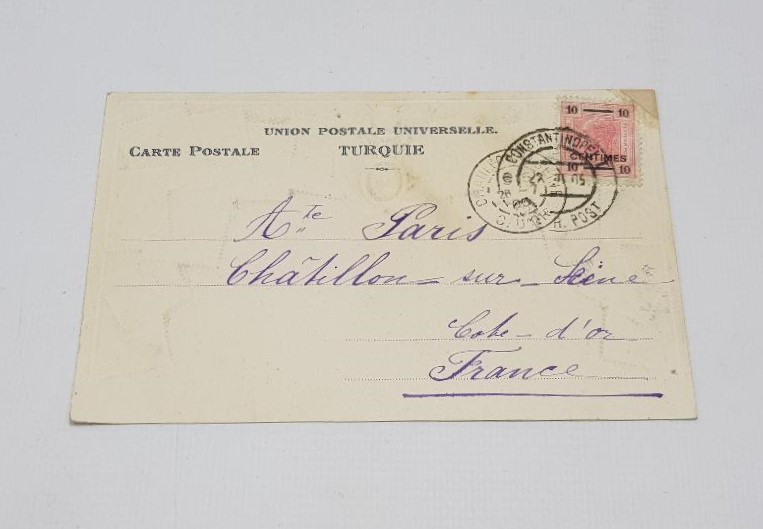 UNION POSTALE UNIVERSELLE.
CARTE POSTALE TURQUIE
10 10
CENTIMES
10 10
CONSTANTINOPEL
POST
Ate Paris
Châtillon-sur-Seine
Cote-d'or
France